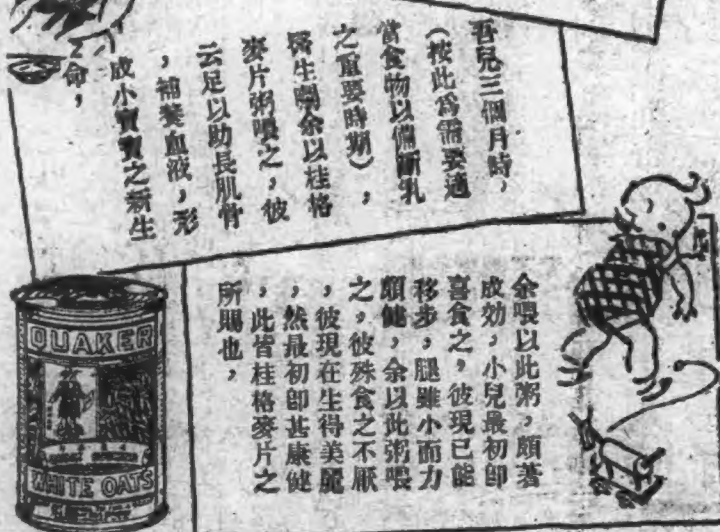 吾兒三個月時，
（按此爲需要適
當食物以備斷乳
之重要時期），
醫生囑余以桂格
麥片粥喂之，彼
云足以助長肌骨
，補養血液，形
成小寶寶之新生
命，
余喂以此粥，頗著
成効，小兒最初卽
喜食之，彼現已能
移步，腿雖小而力
頗健，余以此粥喂
之，彼殊食之不厭
，彼現在生得美麗
，然最初卽甚康健
，此皆桂格麥片之
所賜也，
QUAKER
WHITE OATS